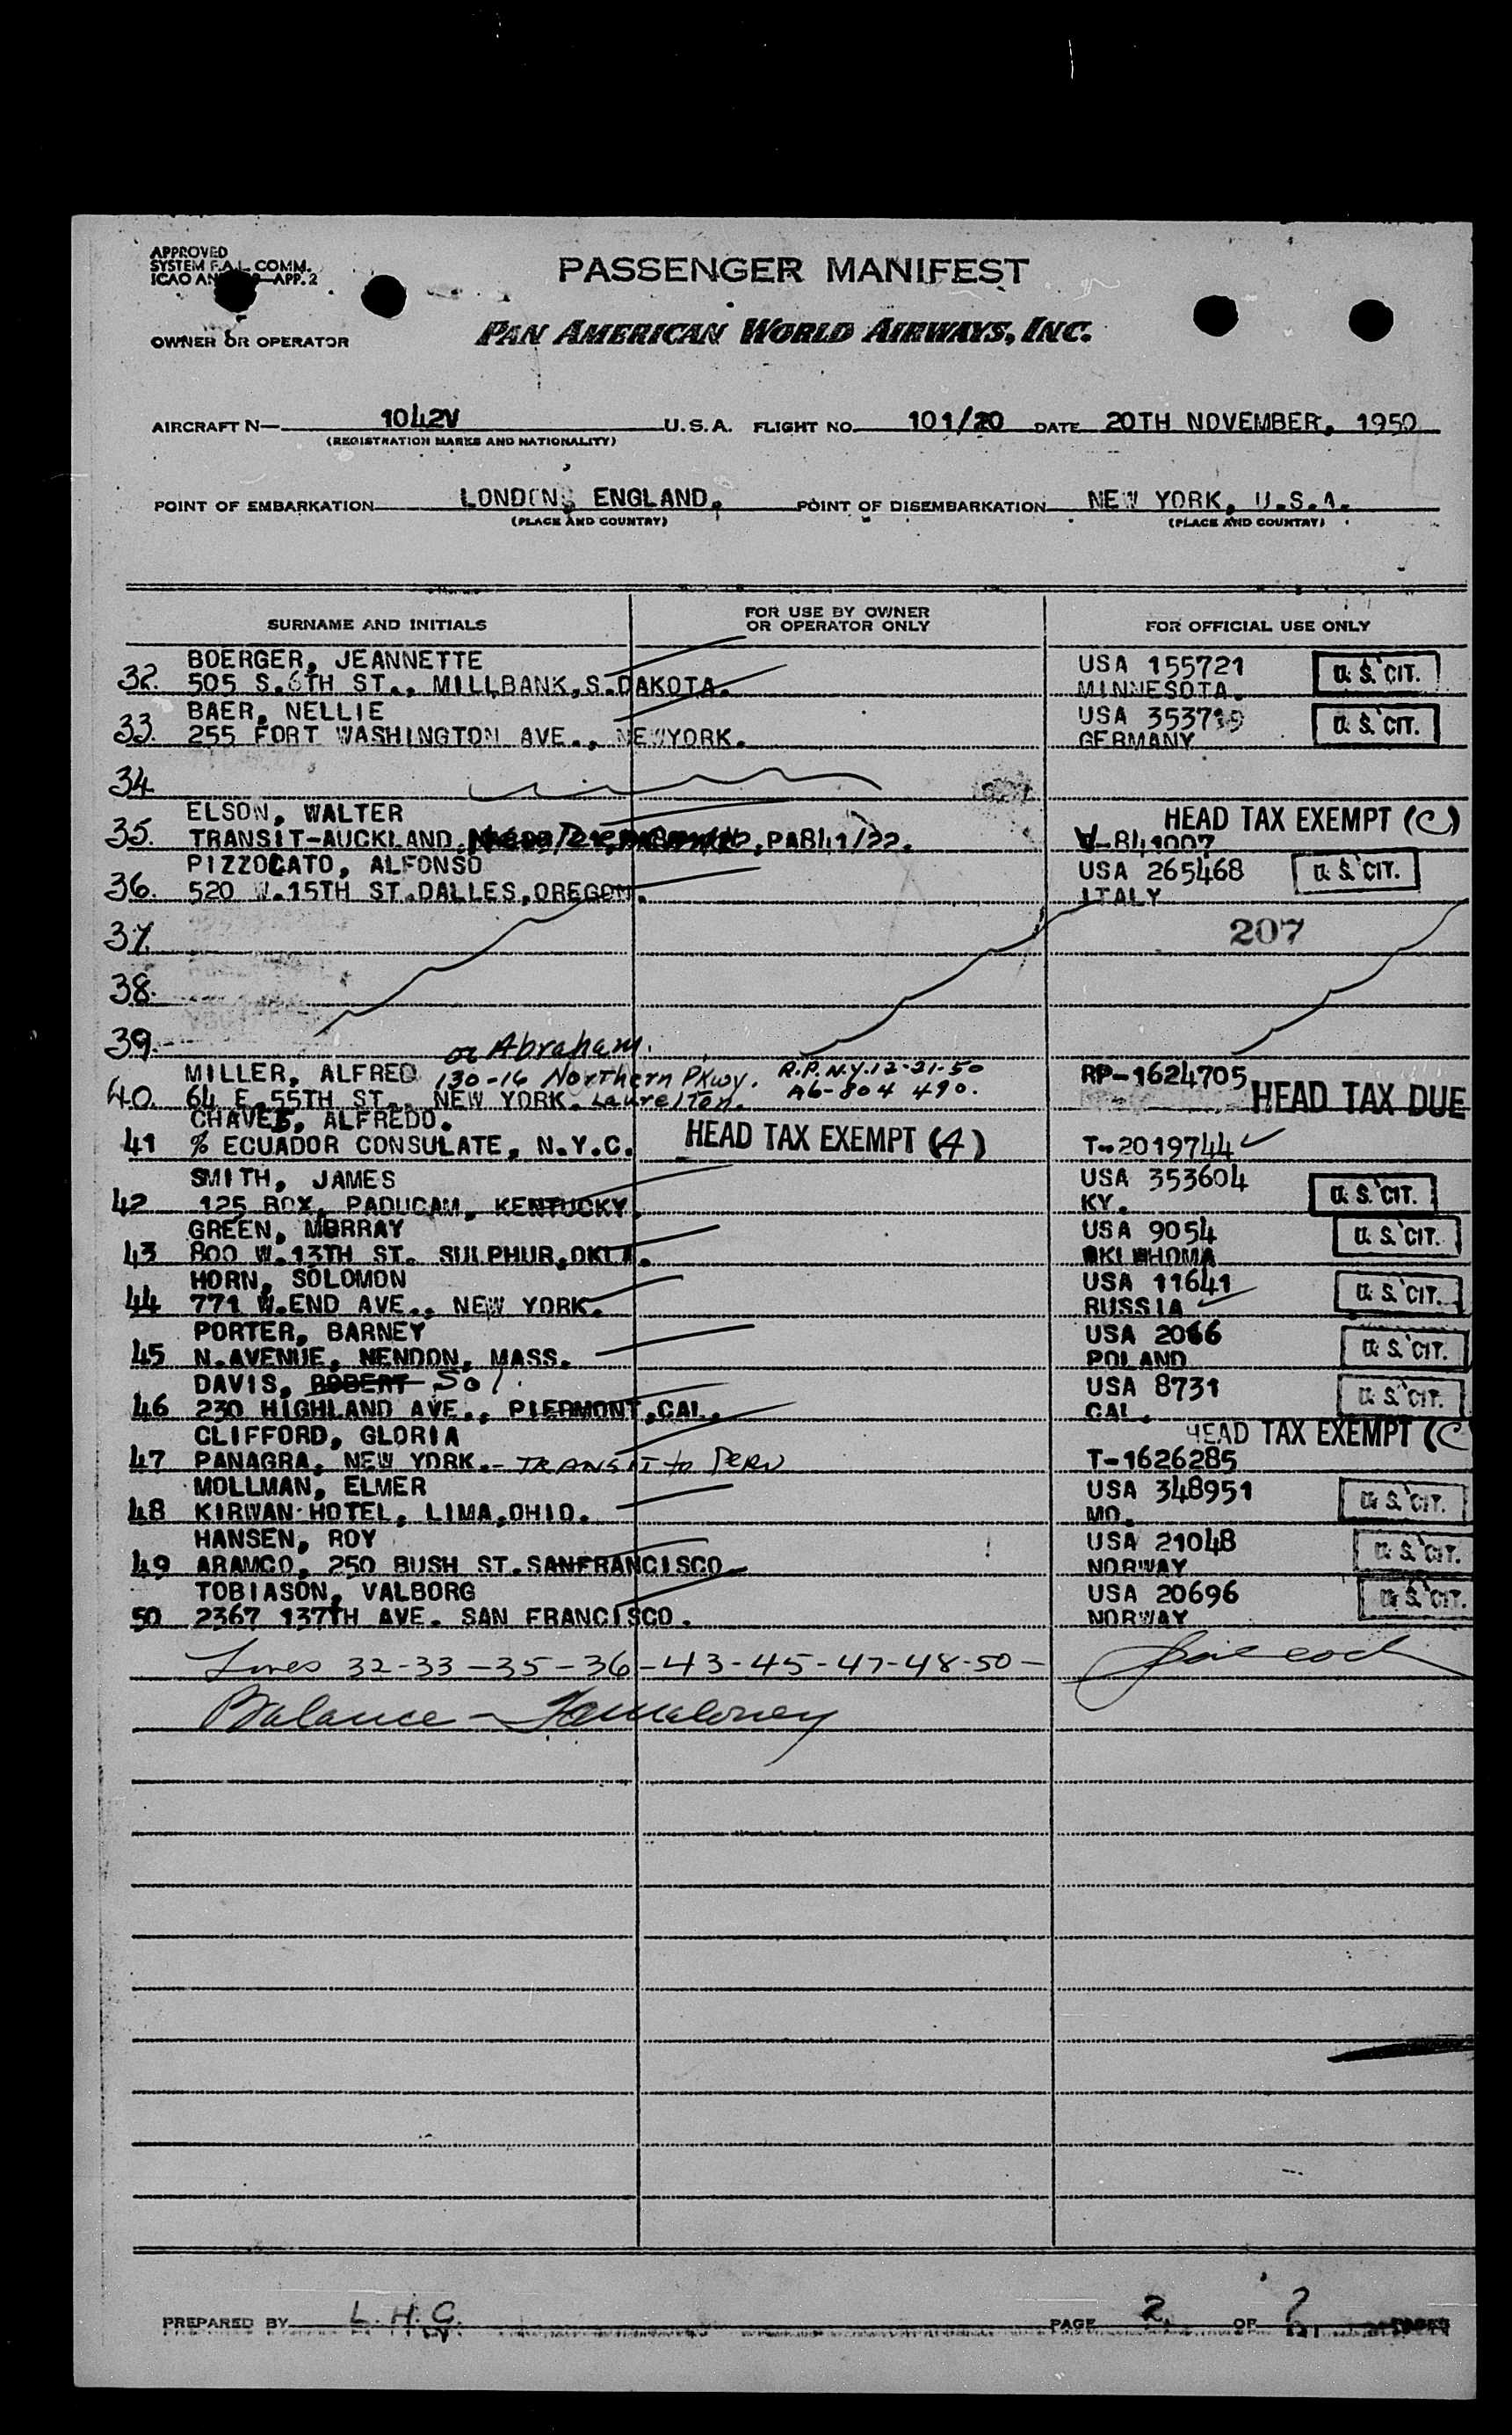 APPROVED
SYSTEM F.A.L. COMM.
ICAO APP. 2
PASSENGER MANIFEST
OWNER OR OPERATOR
PAN AMERICAN WORLD AIRWAYS, INC.
AIRCRAFT N— 1042V U.S.A. FLIGHT NO. 101/20 DATE 20TH NOVEMBER, 1950
(REGISTRATION MARKS AND NATIONALITY)
POINT OF EMBARKATION LONDON, ENGLAND, POINT OF DISEMBARKATION NEW YORK, U.S.A.
(PLACE AND COUNTRY) (PLACE AND COUNTRY)
SURNAME AND INITIALS FOR USE BY OWNER OR OPERATOR ONLY FOR OFFICIAL USE ONLY
BOERGER, JEANNETTE USA 155721 U.S. CIT.
32. 505 S.6TH ST., MILLBANK,S.DAKOTA. MINNESOTA.
BAER, NELLIE USA 353719 U.S. CIT.
33. 255 FORT WASHINGTON AVE., NEWYORK. GERMANY
34.
ELSON, WALTER HEAD TAX EXEMPT (C)
35. TRANSIT-AUCKLAND, PA841/22. V-841007
PIZZOCATO, ALFONSO USA 265468 U.S. CIT.
36. 520 W.15TH ST.DALLES,OREGON. ITALY
37. 207
38.
39.
or Abraham.
MILLER, ALFRED 130-16 Northern Pkwy. R.P.N.Y. 12-21-50 RP-1624705
40. 64 E.55TH ST., NEW YORK. Laurelton. A6-804 490. HEAD TAX DUE
CHAVES, ALFREDO.
41 % ECUADOR CONSULATE, N.Y.C. HEAD TAX EXEMPT (4) T-2019744
SMITH, JAMES USA 353604 U.S. CIT.
42 125 BOX, PADUCAM, KENTUCKY. KY.
GREEN, MURRAY USA 9054 U.S. CIT.
43 800 W.13TH ST. SULPHUR,OKLA. OKLAHOMA
HORN, SOLOMON USA 11641 U.S. CIT.
44 771 W.END AVE., NEW YORK. RUSSIA
PORTER, BARNEY USA 2066 U.S. CIT.
45 N.AVENUE, NENDON, MASS. POLAND
DAVIS, ROBERT Sol. USA 8731 U.S. CIT.
46 230 HIGHLAND AVE., PIERMONT,CAL. CAL.
CLIFFORD, GLORIA HEAD TAX EXEMPT (C
47 PANAGRA, NEW YORK. - TRANSIT to PERU T-1626285
MOLLMAN, ELMER USA 348951 U.S. CIT.
48 KIRWAN HOTEL, LIMA,OHIO. MO.
HANSEN, ROY USA 21048 U.S. CIT.
49 ARAMCO, 250 BUSH ST.SANFRANCISCO NORWAY
TOBIASON, VALBORG USA 20696 U.S. CIT.
50 2367 137TH AVE. SAN FRANCISCO. NORWAY
Lines 32-33-35-36-43-45-47-48-50-
Balance -
PREPARED BY L.H.G. PAGE 2 OF